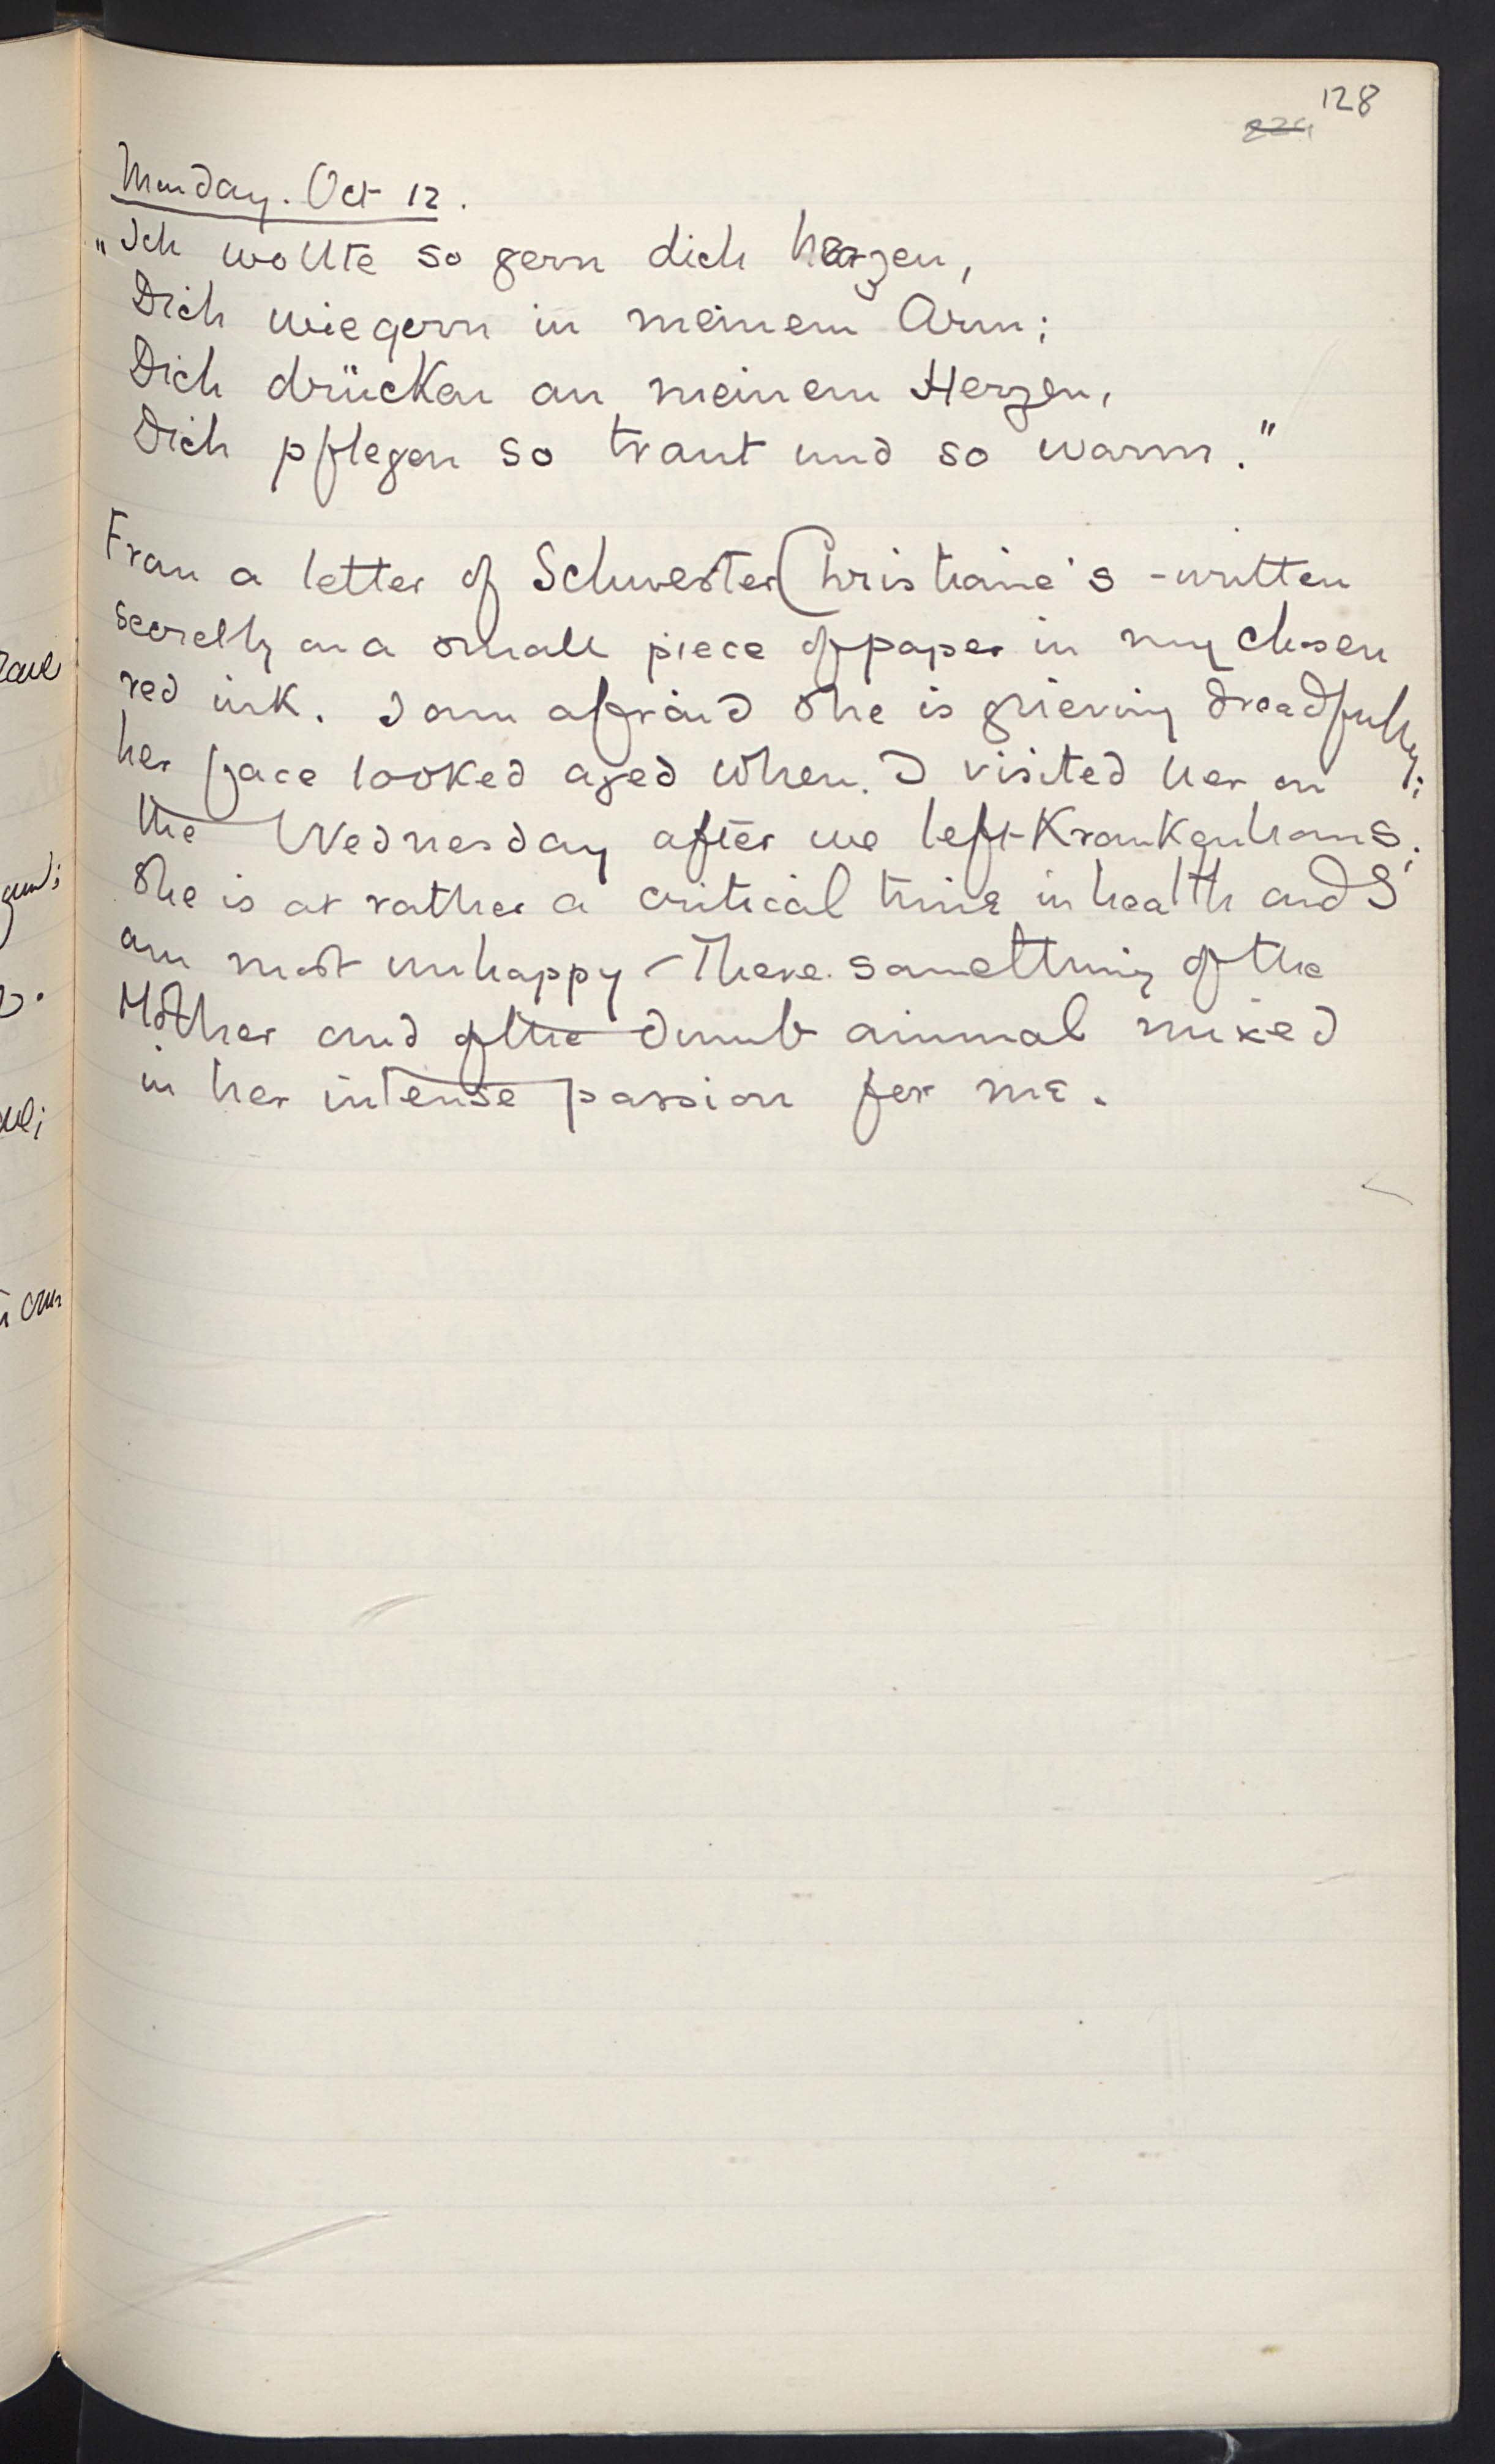 128
Monday. Oct 12.
"Ich wollte so gern dich herzen,
Dich wiegern in meinem Arm;
Dich drücken an meinem Herzen,
Dich pflegen so traut und so warm."
From a letter of Schwester Christiane's - written
secretly on a small piece of paper in my chosen
red ink. I am afraid she is grieving dreadfully;
her face looked aged when I visited her on
the Wednesday after we left Krankenhaus;
She is at rather a critical time in health and I
am most unhappy - There something of the
Mother and of the dumb animal mixed
in her intense passion for me.